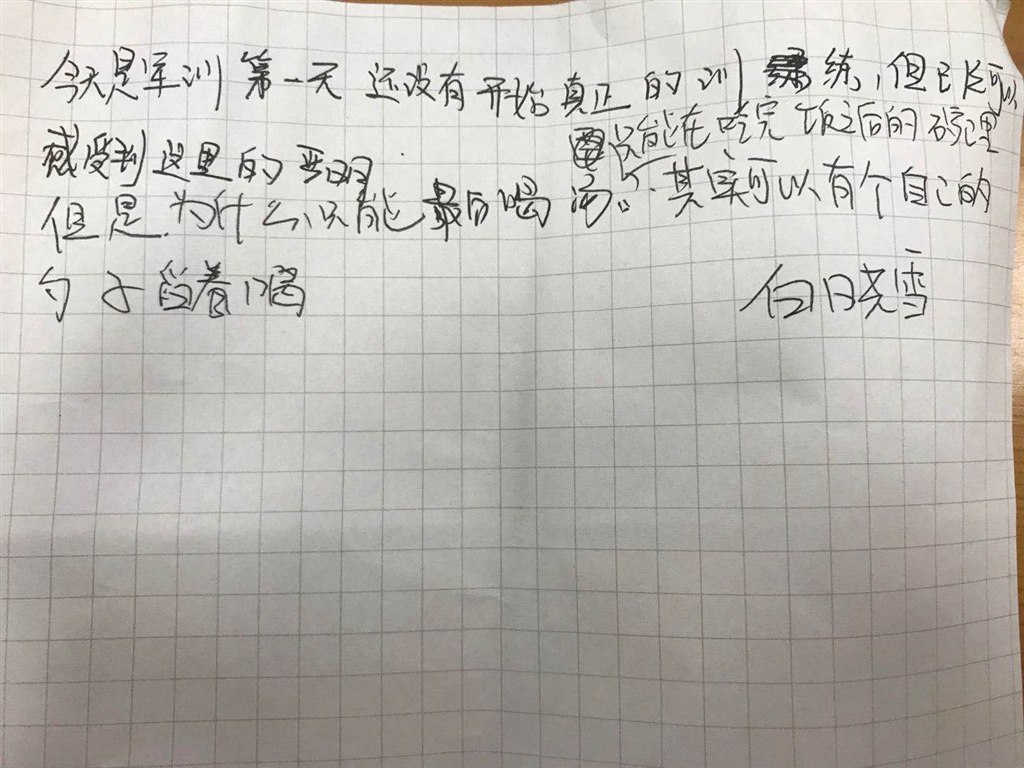 今天是军训第一天 还没有开始真正的训练,但已经可以
感受到这里的严明. 只能在吃完饭之后的碗里
但是.为什么只能最后喝汤。其实可以有个自己的
勺子留着喝
白日晓雪